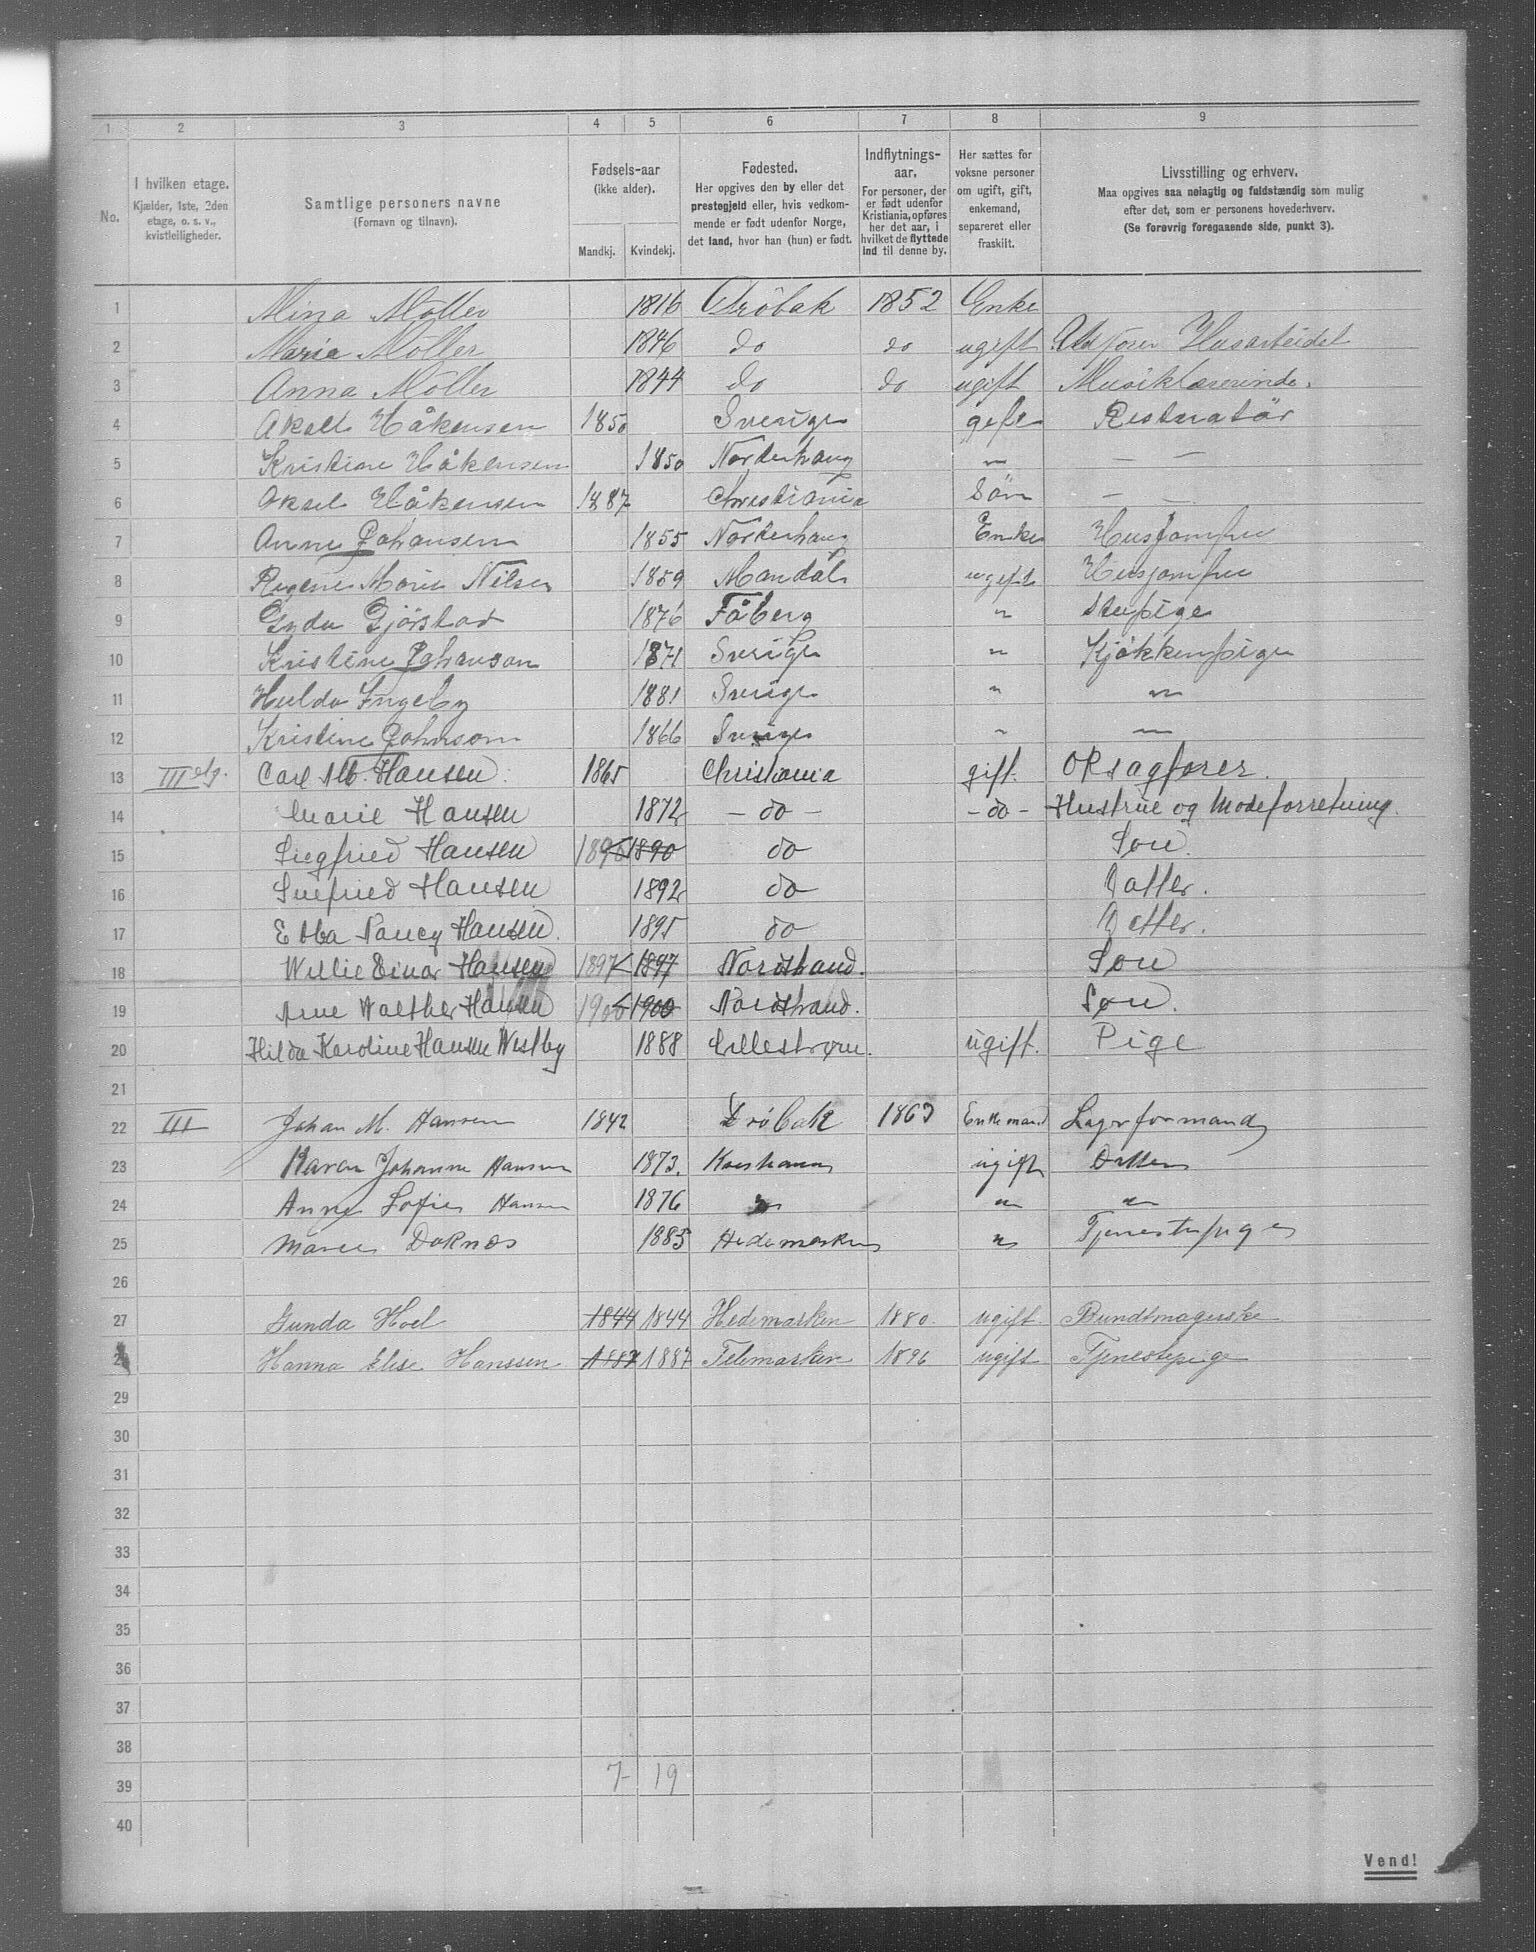 1 2 3 4 5 6 7 8 9
No.
I hvilken etage.
Kjælder, 1ste, 2den
etage, o. s. v.,
kvistleiligheder.
Samtlige personers navne
(Fornavn og tilnavn).
Fødsels-aar
(ikke alder).
Mandkj. Kvindekj.
Fødested.
Her opgives den by eller det
prestegjeld eller, hvis vedkom-
mende er født udenfor Norge,
det land, hvor han (hun) er født.
Indflytnings-
aar.
For personer, der
er født udenfor
Kristiania, opføres
her det aar, i
hvilket de flyttede
ind til denne by.
Her sættes for
voksne personer
om ugift, gift,
enkemand,
separeret eller
fraskilt.
Livsstilling og erhverv.
Maa opgives saa nøiagtig og fuldstændig som mulig
efter det, som er personens hovederhverv.
(Se forøvrig foregaaende side, punkt 3).
1 Mina Möller 1816 Dröbak 1852 Enke
2 Maria Möller 1846 do do ugift Udfører Husarbeidet
3 Anna Möller 1844 do do ugift Musiklærerinde.
4 Aksel Håkensen 1850 Sverige gift Restauratör
5 Kristine Håkensen 1850 Norderhaug " — —
6 Aksel Håkensen 1887 Christiania Sön — —
7 Anne Johansen 1855 Norderhaug Enke Husjomfru
8 Regine Marie Nilsen 1859 Mandal ugift Husjomfru
9 Gyda Gjörstad 1876 Fåberg " Stupige
10 Kristine Johanson 1871 Sverige " Kjökkenpige
11 Hulda Ingeby 1881 Sverige " "
12 Kristine Johnson 1866 Sverige " "
13 III etg. Carl Alb. Hansen 1865 Christiania gift. Oksagfører.
14 Marie Hansen 1872 — do — — do — Hustrue og Modeforretning.
15 Siegfried Hansen 1890 1890 do Søn.
16 Snefried Hansen 1892 do Datter.
17 Ebba Nancy Hansen. 1895 do Datter.
18 Willie Einar Hansen 1897 1897 Nordstrand. Søn
19 Arne Walther Hansen 1900 1900 Nordstrand. Søn.
20 Hilda Karoline Hansen Westby 1888 Lillestrøm. ugift. Pige
21
22 III Johan M. Hansen 1842 Dröbak 1863 Enkemand Lagerformand
23 Karen Johanne Hansen 1873. Kristiania ugift Datter
24 Anna Sofie Hansen 1876 " " "
25 Marie Doknæs 1885 Hedemarken " Tjenestepige
26
27 Gunda Hoel 1844 1844 Hedemarken 1880. ugift Bundtmagerske
28 Hanna Elise Hanssen 1887 1887 Telemarken 1896 ugift Tjenestepige
29
30
31
32
33
34
35
36
37
38
39 7 - 19
40
Vend!